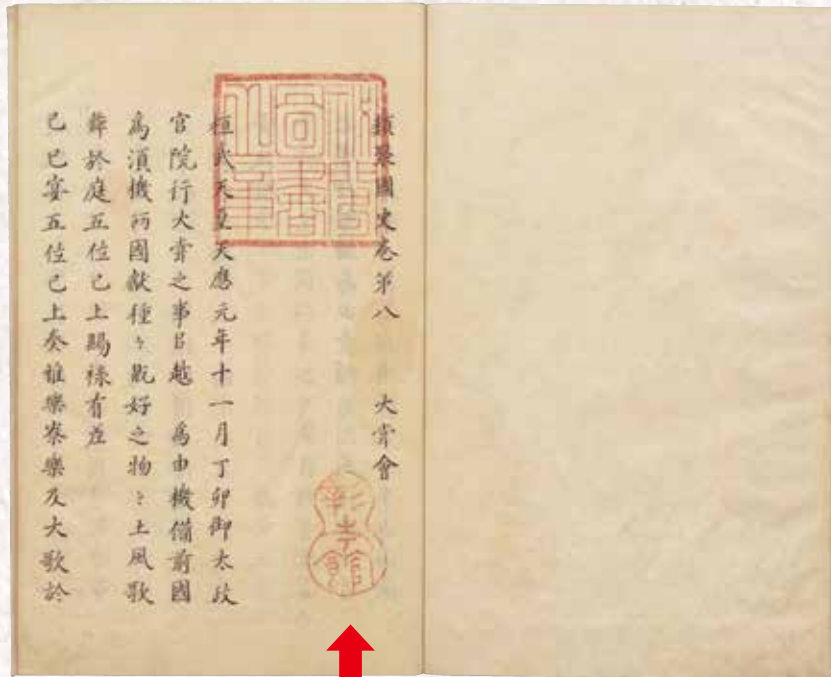 類聚國史卷第八 大甞會
桓武天皇天應元年十一月丁卯御太政
官院行大甞之事㠯越 為由機備前國
為湏機两國獻種〻翫好之物〻土風歌
舞於庭五位已上賜禄有差
己巳宴五位已上奏雅樂寮樂及大歌於
秘閣圖書之章
彰考館